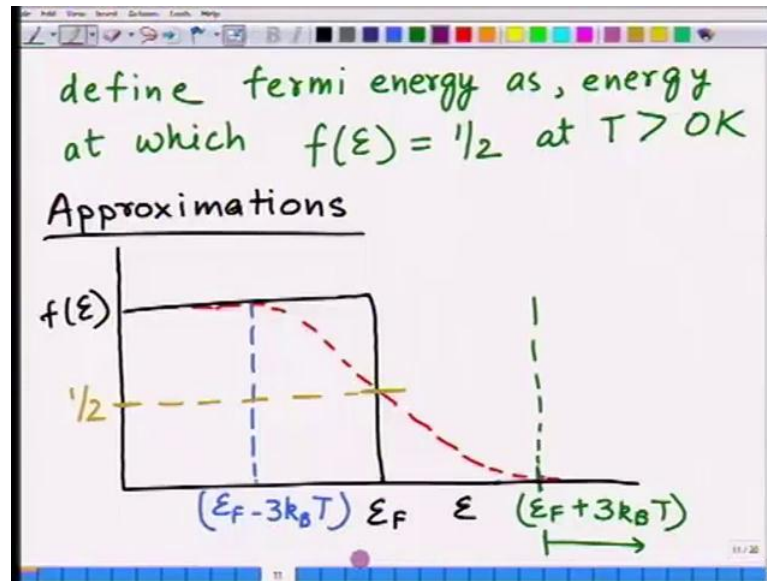 define fermi energy as, energy
at which f(ε) = 1/2 at T > 0K
Approximations
f(ε)
1/2
(εF - 3kBT) εF ε (εF + 3kBT)
11
11 / 20